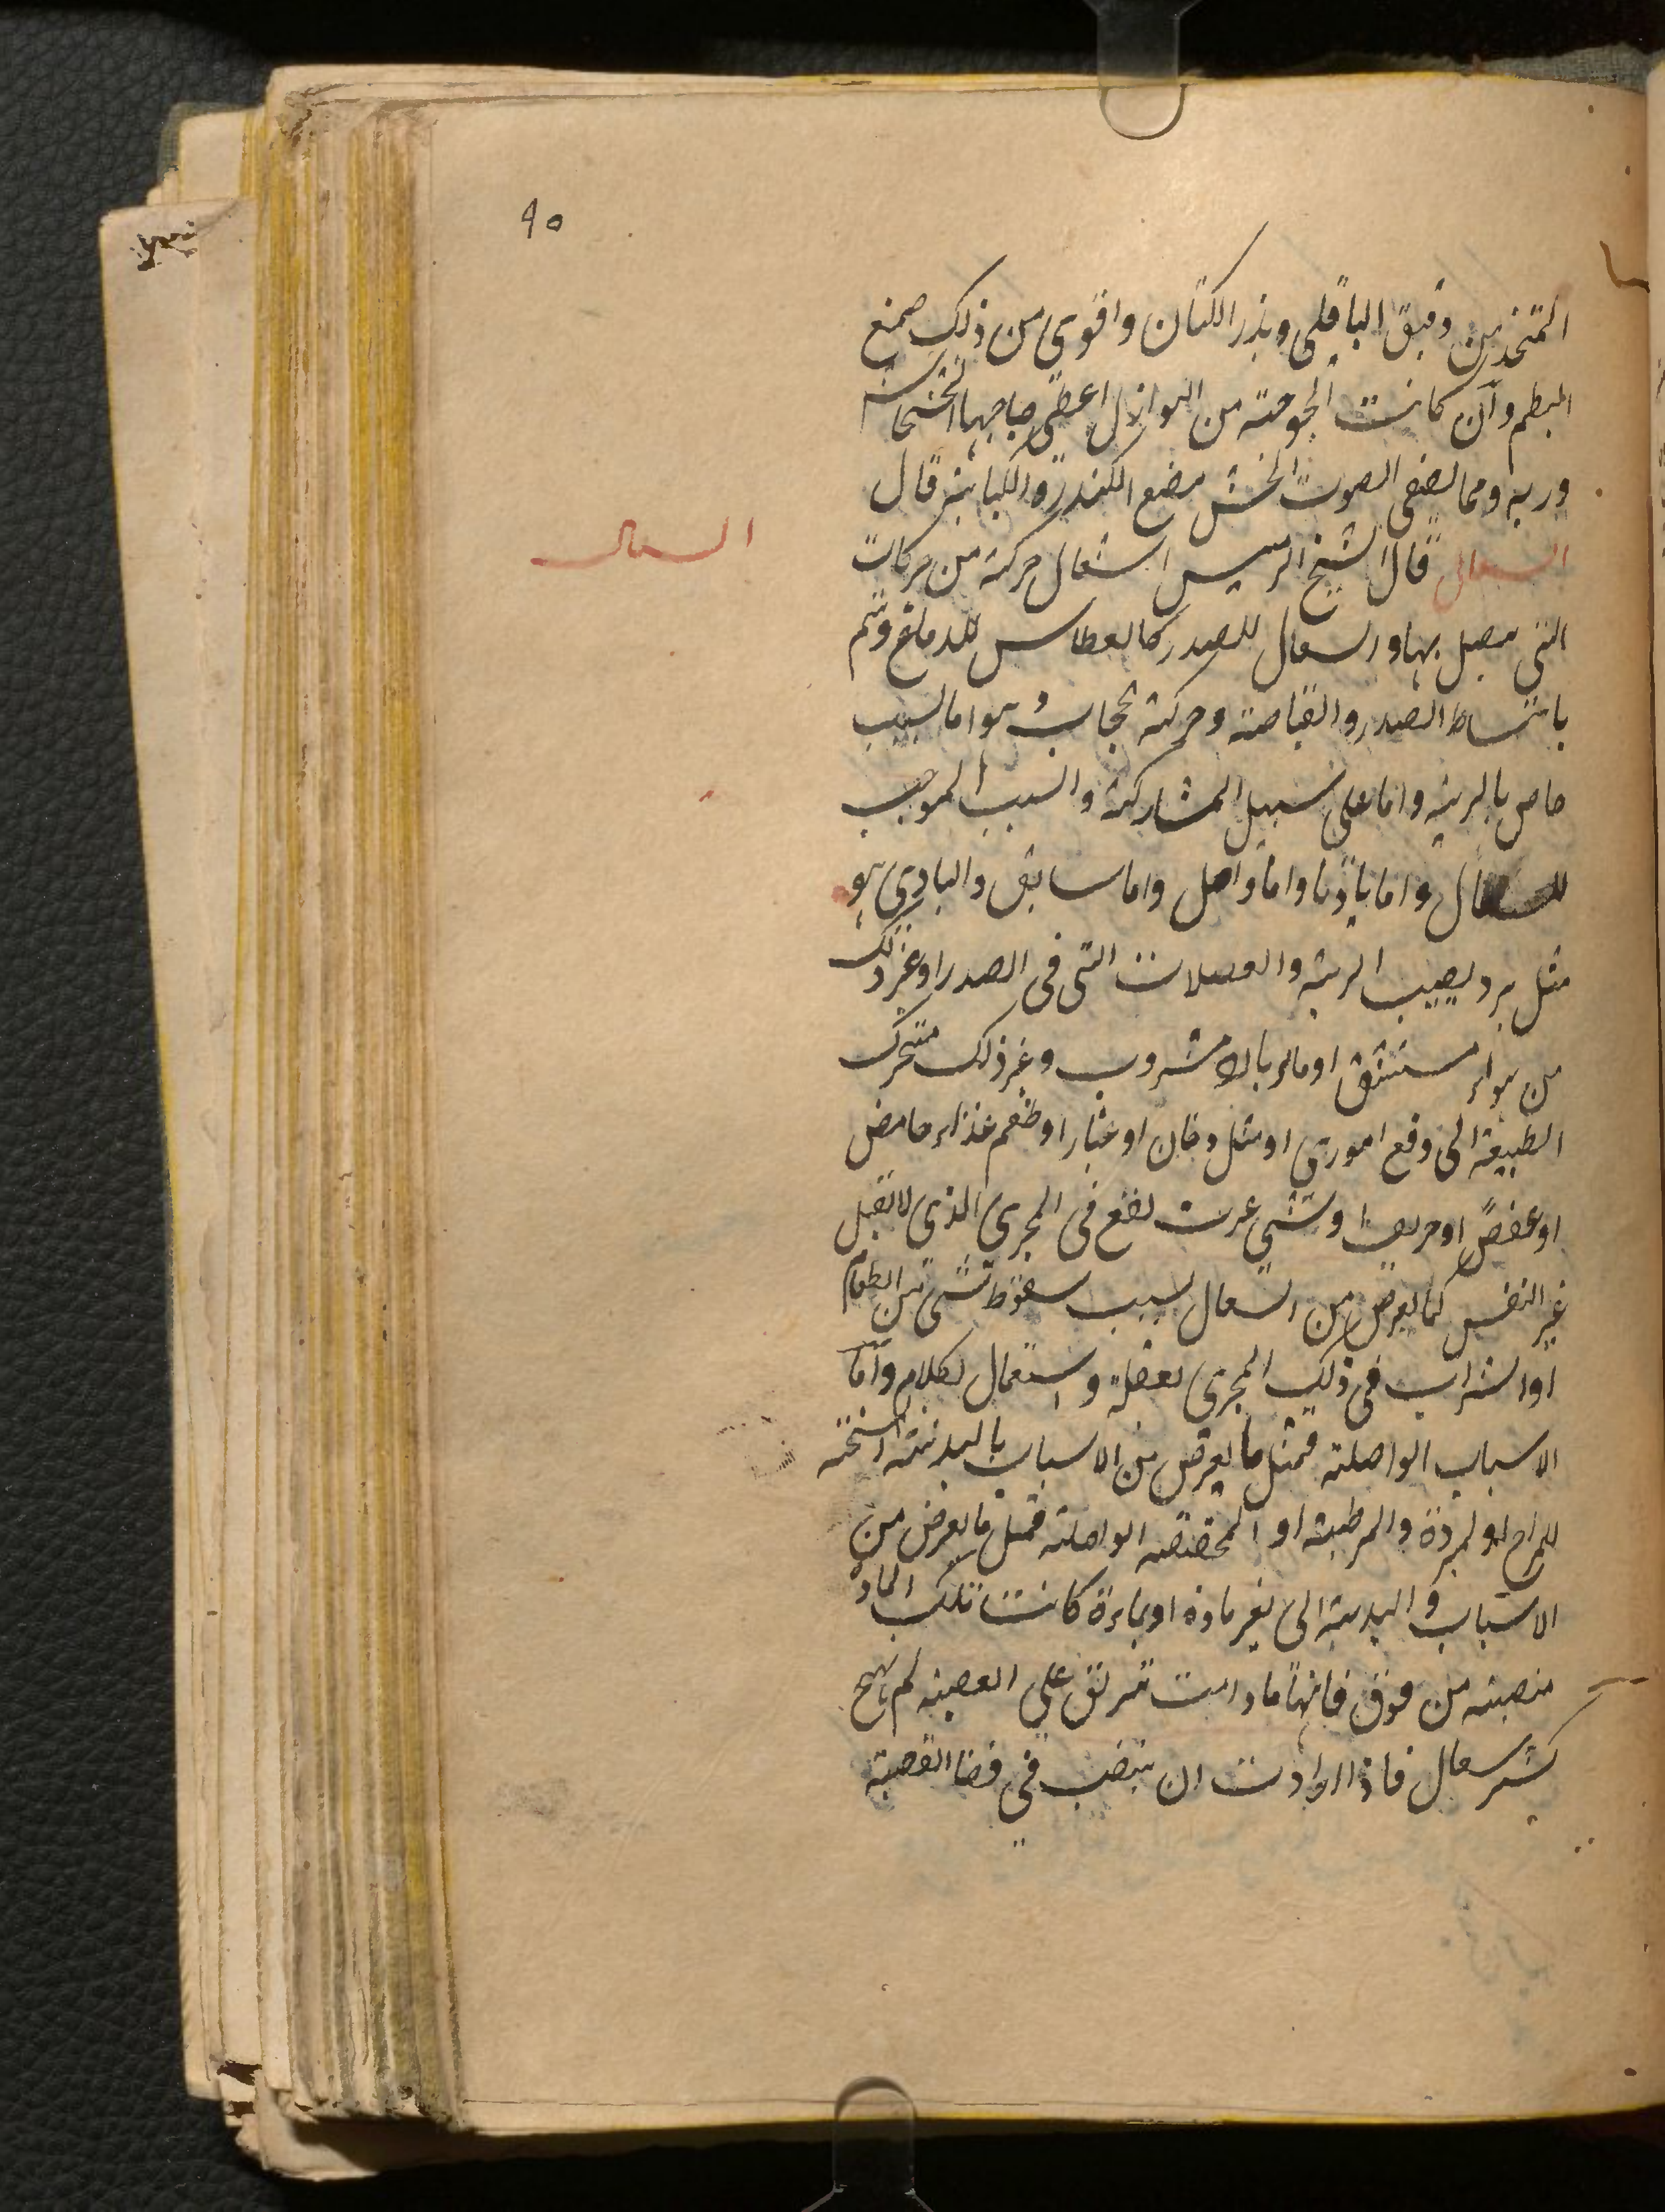 ٩٥
المتخذ من دقيق الباقلى وبذر الكتان واقوى من ذلك صمغ
البطم وان كانت البحوحة من النوازل اعطى صاحبها الخشخاش
وربه ومما يصفى الصوت الخشن مضغ الكندر والكبابة قال
السعال
السعال قال الشيخ الرئيس السعال حركة من حركات
التى بها والسعال للصدر كالعطاس للدماغ ويتم
بانبساط الصدر وانقباضه وحركة حجاب وهو اما لسبب
خاص بالرية واما على سبيل المشاركة والسبب الموجب
للسعال واما باديا واما واصل واما سابق والبادى هو
مثل برد يصيب الرية والعضلات التى فى الصدر او غير ذلك
من هواء مستنشق او ماء بارد مشروب وغير ذلك متحرك
الطبيعة الى دفع اموذى او مثل دخان او غبار او طعم غذاء حامض
او عفص او حريف او شى غريب يقع فى المجرى الذى لا يقبل
غير النفس كما يعرض من السعال بسبب سقوط شى من الطعام
او الشراب فى ذلك المجرى لغفلة واستعمال لكلام واما
الاسباب الواصلة فمثل ما يعرض من الاسباب بالبدنية المسخنة
للمزاج او لمبردة والمرطبة او المجففة الواصلة فمثل ما يعرض من
الاسباب والبدنية الى بغير مادة او بمادة كانت تلك المادة
منصبة من فوق فانها ما دامت تنزلق على القصبة لم يهج
كثير سعال فاذا ارادت ان تنصب فى فضا القصبة